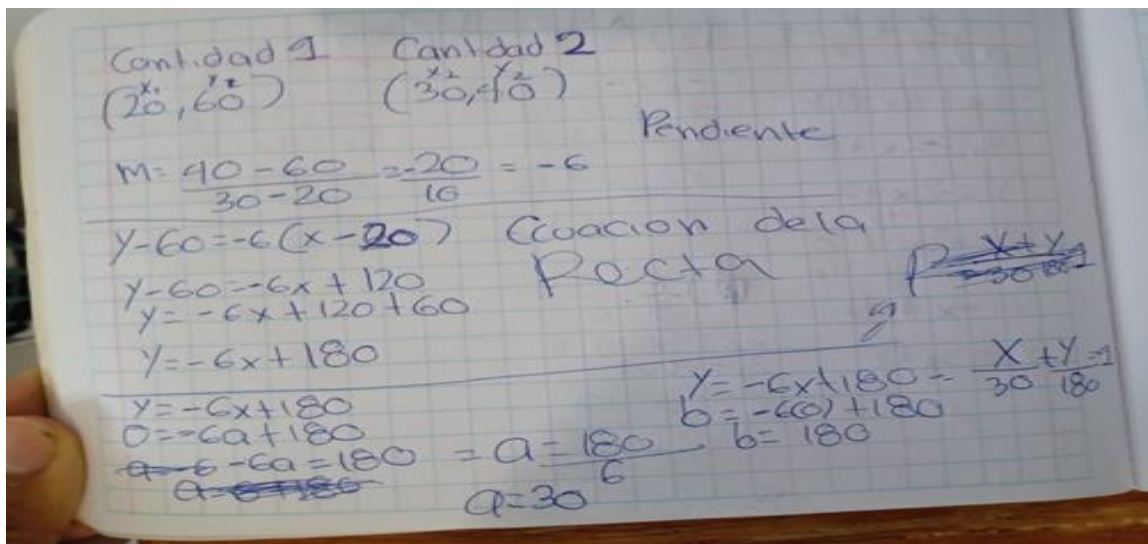 Cantidad 1 Cantidad 2
(20, 60) (30, 40)
Pendiente
M= 40-60 / 30-20 = -20 / 10 = -6
y-60=-6(x-20) Ecuacion dela
Recta
y-60=-6x+120
y=-6x+120+60
y=-6x+180
y=-6x+180
0=-6a+180
-6a=180 = a=180/6
a=30
y=-6x+180 - x/30 + y/180 =1
b=-6(0)+180
b=180